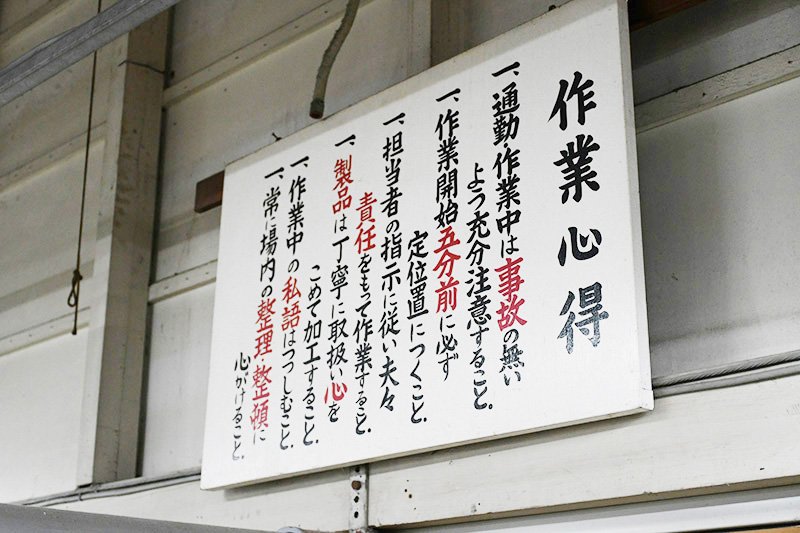 作業心得
一、通勤・作業中は事故の無い
よう充分注意すること.
一、作業開始五分前に必ず
定位置につくこと.
一、担当者の指示に従い夫々
責任をもって作業すること.
一、製品は丁寧に取扱い心を
こめて加工すること.
一、作業中の私語はつつしむこと.
一、常に場内の整理・整頓に
心がけること.